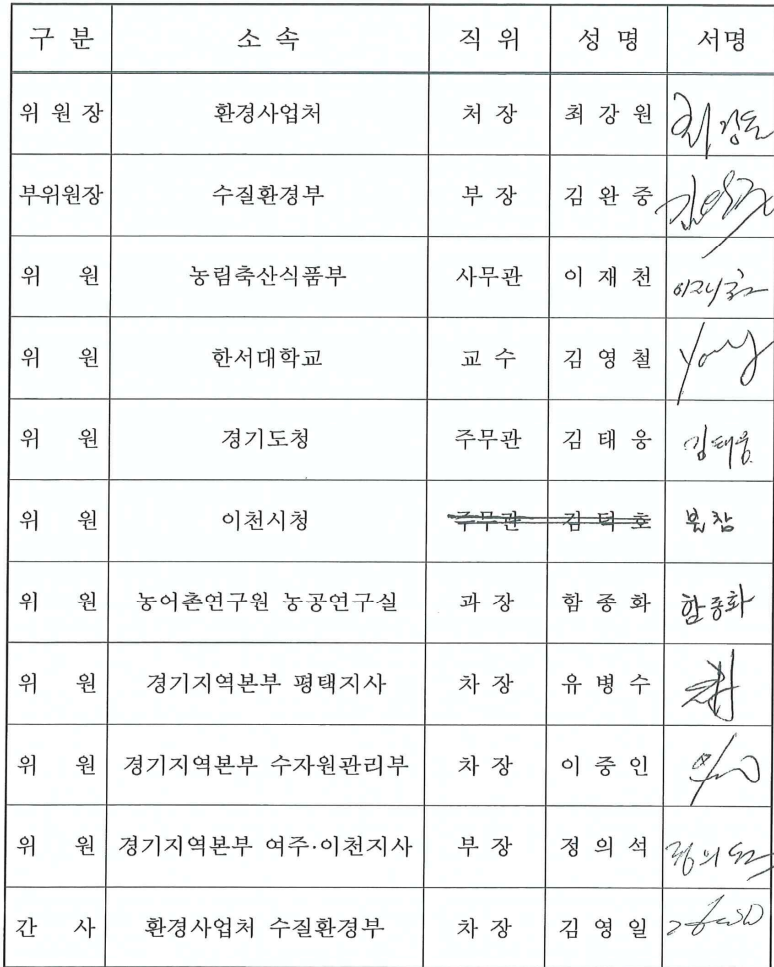 구 분 소 속 직 위 성 명 서명
위 원 장 환경사업처 처 장 최 강 원
부위원장 수질환경부 부 장 김 완 중
위 원 농림축산식품부 사무관 이 재 천
위 원 한서대학교 교 수 김 영 철
위 원 경기도청 주무관 김 태 웅 김태웅
위 원 이천시청 주무관 김 덕 호 불참
위 원 농어촌연구원 농공연구실 과 장 함 종 화 함종화
위 원 경기지역본부 평택지사 차 장 유 병 수
위 원 경기지역본부 수자원관리부 차 장 이 중 인
위 원 경기지역본부 여주·이천지사 부 장 정 의 석 정의석
간 사 환경사업처 수질환경부 차 장 김 영 일